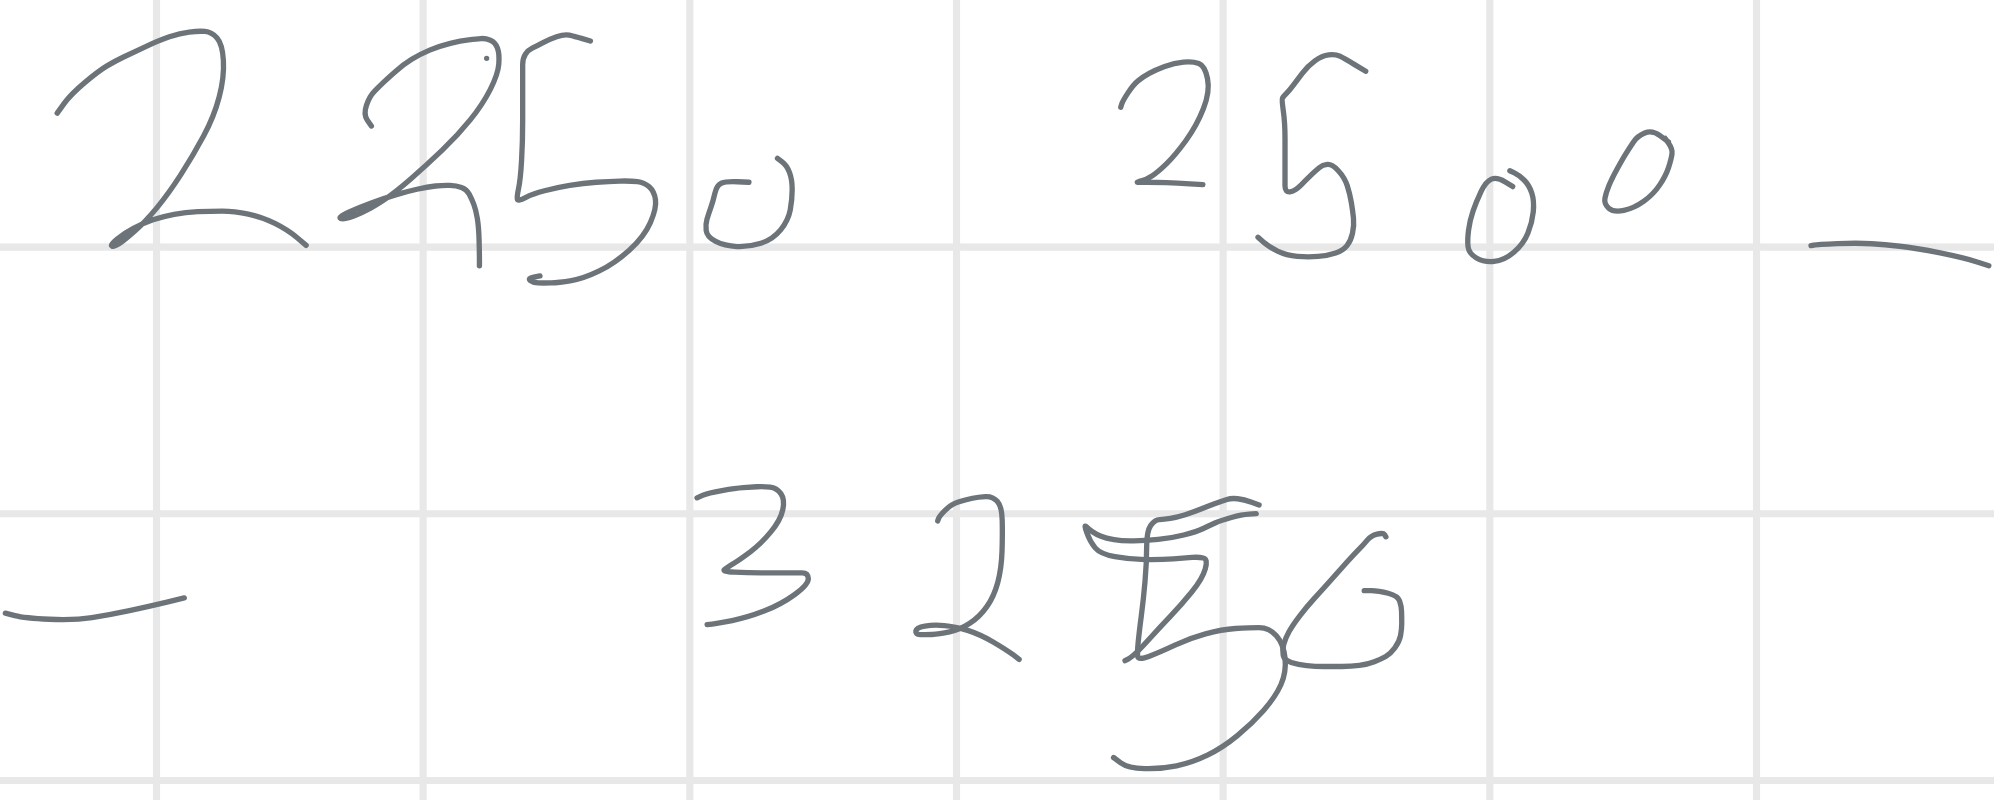 2250 2500 _
_ 3250